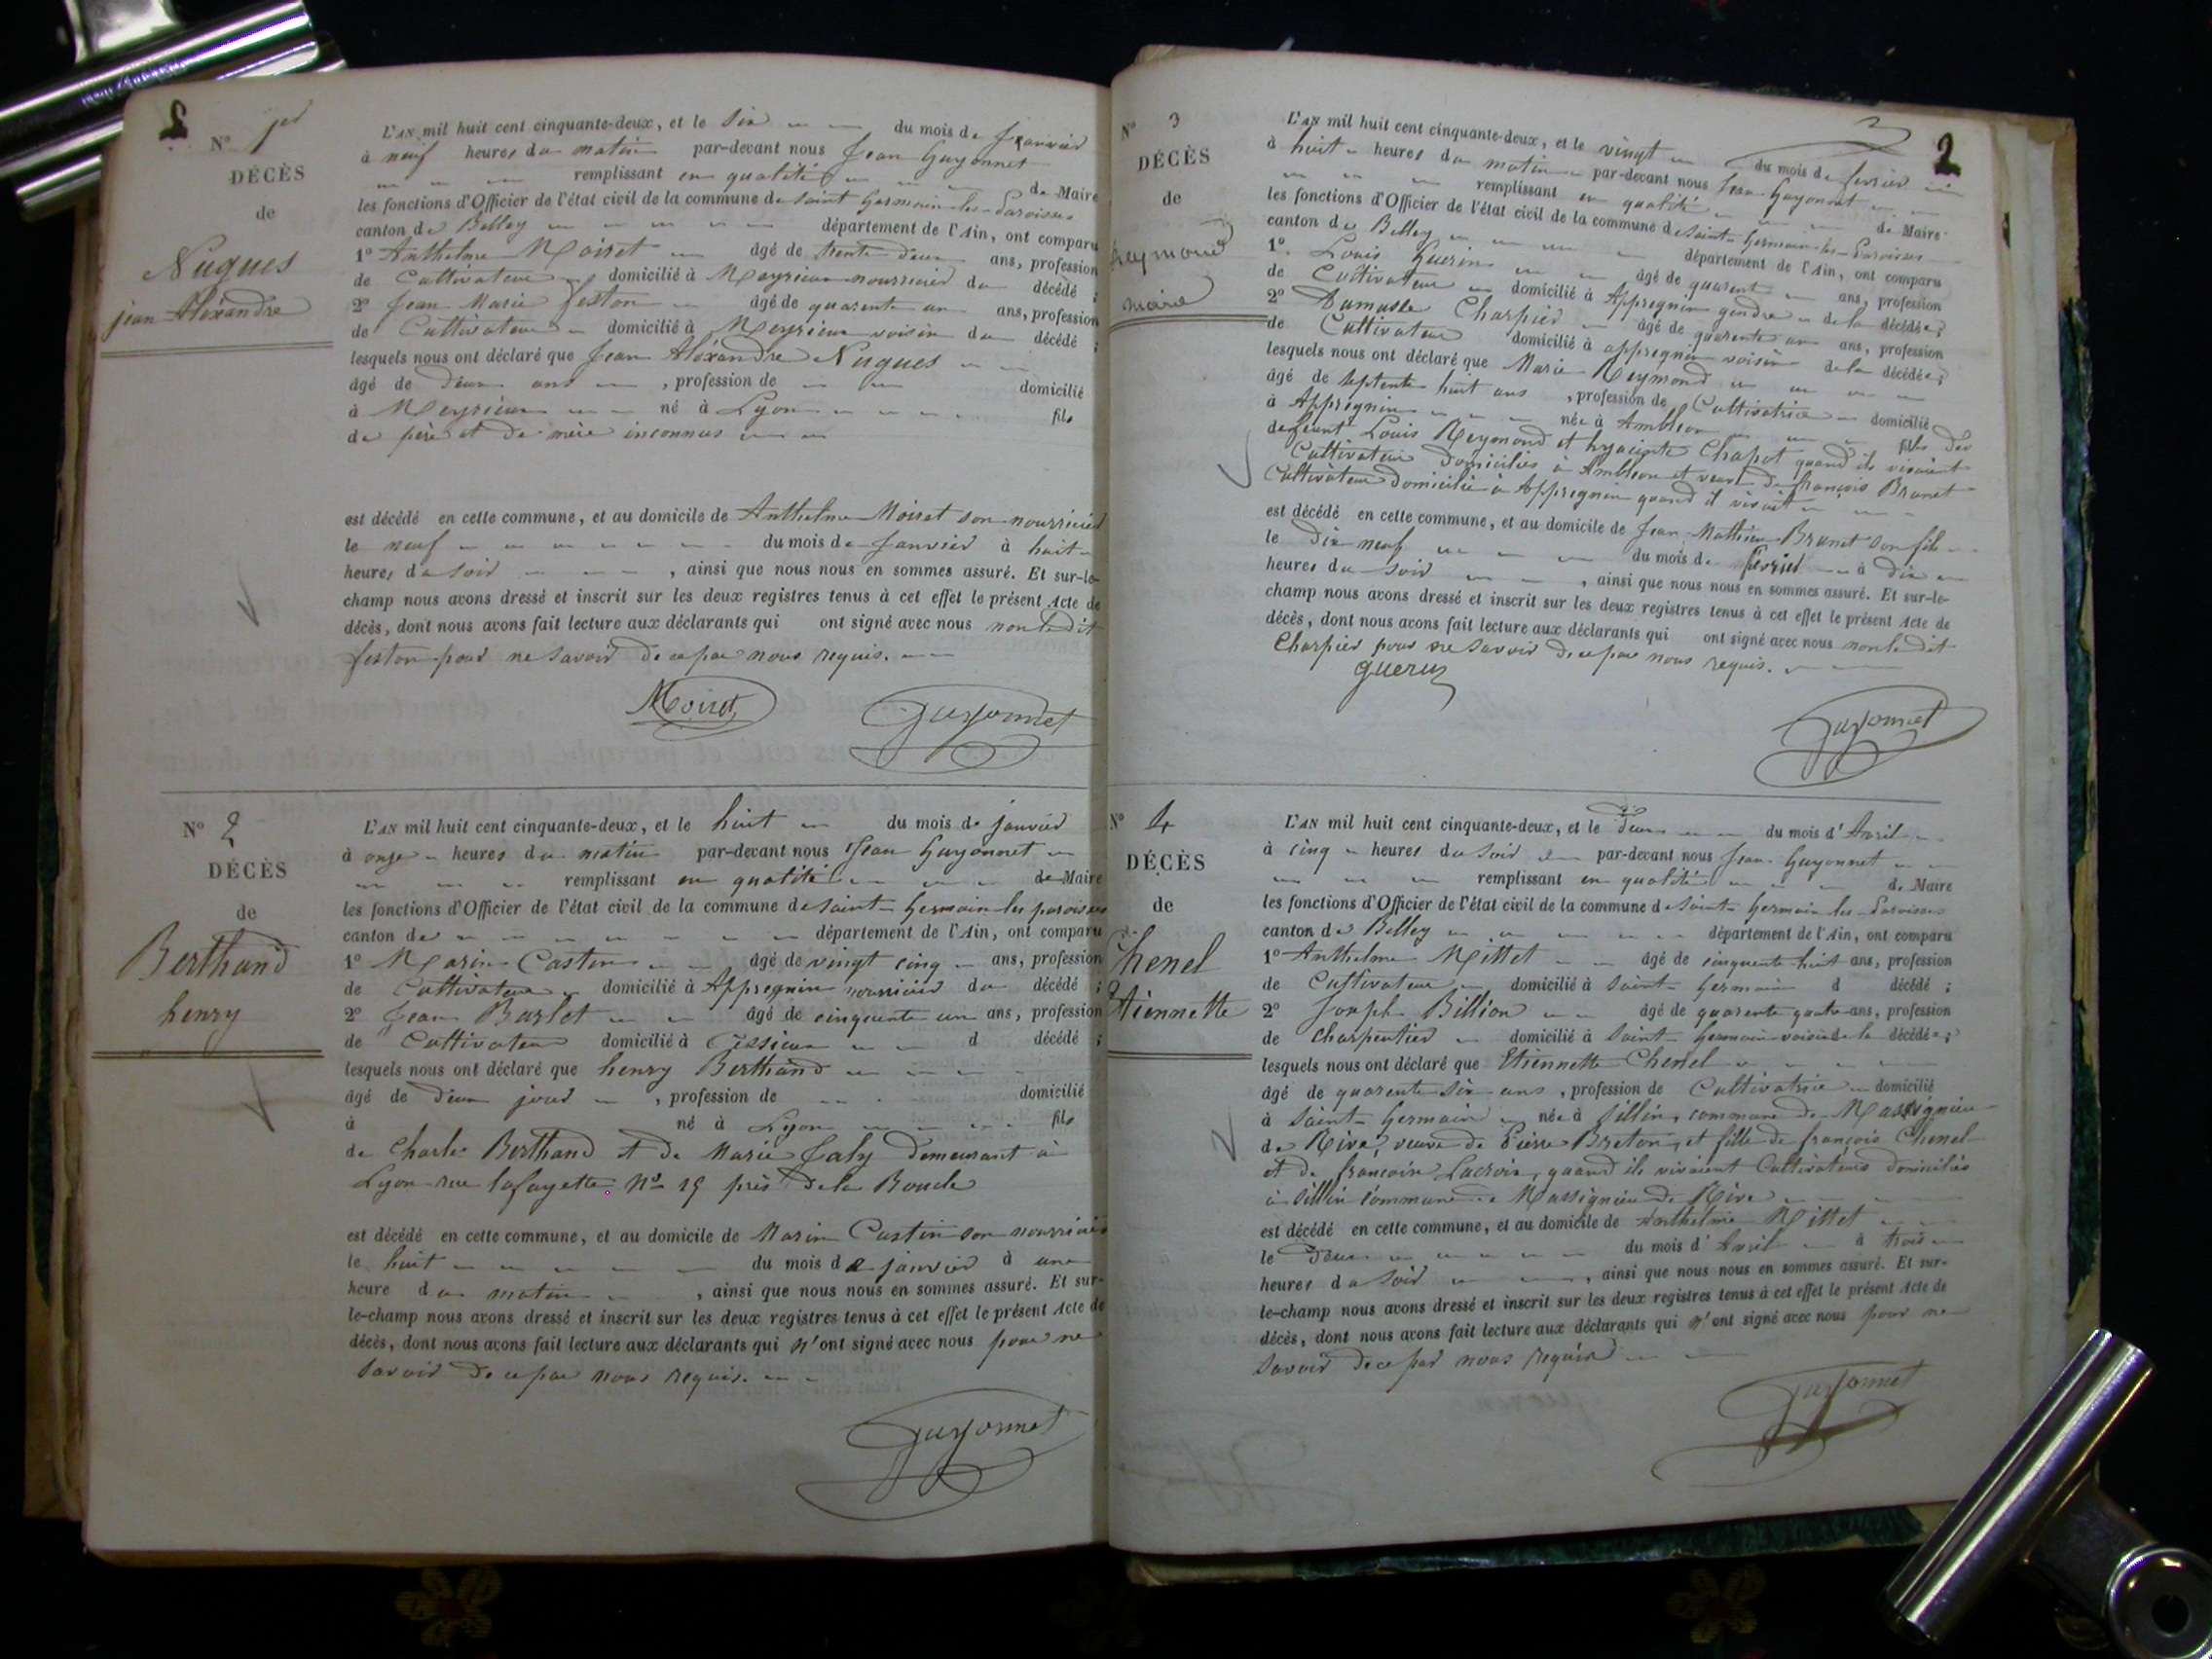 N° 1er
DÉCÈS
de
Nugues
jean Aléxandre
L'AN mil huit cent cinquante-deux, et le six du mois de Janvier
à neuf heures du matin par-devant nous Jean Guyonnet
remplissant en qualité de Maire
les fonctions d'Officier de l'état civil de la commune de Saint Germain-les-Paroisses
canton de Belley département de l'Ain, ont comparu
1° Anthelme Moiret âgé de trente deux ans, profession
de Cultivateur domicilié à Meyrieu nourricier du décédé ;
2° Jean Marie feston âgé de quarente un ans, profession
de Cultivateur domicilié à Meyrieu voisin du décédé ;
lesquels nous ont déclaré que Jean Aléxandre Nugues
âgé de deux ans , profession de domicilié
à Meyrieu né à Lyon fils
de père et de mère inconnus
est décédé en cette commune, et au domicile de Anthelme Moiret son nourricier
le neuf du mois de Janvier à huit
heures du soir , ainsi que nous nous en sommes assuré. Et sur-le-
champ nous avons dressé et inscrit sur les deux registres tenus à cet effet le présent Acte de
décès, dont nous avons fait lecture aux déclarants qui ont signé avec nous non ledit
feston pour ne savoir de ce par nous requis.
Moiret Guyonnet
N° 2
DÉCÈS
de
Berthand
henry
L'AN mil huit cent cinquante-deux, et le huit du mois de janvier
à onze heures du matin par-devant nous Jean Guyonnet
remplissant en qualité de Maire
les fonctions d'Officier de l'état civil de la commune de Saint-Germain les paroisses
canton de département de l'Ain, ont comparu
1° Marin Castin âgé de vingt cinq ans, profession
de Cultivateur domicilié à Appregnin nourricier du décédé ;
2° Jean Barlet âgé de cinquante un ans, profession
de Cultivateur domicilié à Cessieu d décédé ;
lesquels nous ont déclaré que henry Berthand
âgé de deux jour , profession de domicilié
à né à Lyon fils
de Charle Berthand et de Marie Faly demeurant à
Lyon rue lafayette N° 19 près de la Boucle
est décédé en cette commune, et au domicile de Marin Castin son nourricier
le huit du mois de janvier à une
heure du matin , ainsi que nous nous en sommes assuré. Et sur-
le-champ nous avons dressé et inscrit sur les deux registres tenus à cet effet le présent Acte de
décès, dont nous avons fait lecture aux déclarants qui n'ont signé avec nous pour ne
savoir de ce par nous requis.
Guyonnet
2
N° 3
DÉCÈS
de
Reymond
marie
L'AN mil huit cent cinquante-deux, et le vingt du mois de fevrier
à huit heures du matin par-devant nous Jean Guyonnet
remplissant en qualité de Maire
les fonctions d'Officier de l'état civil de la commune de Saint-Germain-les-Paroisses
canton de Belley département de l'Ain, ont comparu
1° Louis Guerin âgé de quarent ans, profession
de Cultivateur domicilié à Appregnin gendre de la décédée ;
2° Damasse Charpier âgé de quarente un ans, profession
de Cultivateur domicilié à appregnin voisin de la décédée ;
lesquels nous ont déclaré que Marie Reymond
âgé de septente huit ans , profession de Cultivatrice domicilié
à Appregnin née à Ambleon fille des
defeunt Louis Reymond et hyacinte Chapot quand ils vivaient
Cultivateur domiciliés à Ambleon et veuve de françois Brunet
Cultivateur domicilié à Appregnin quand il vivait
est décédé en cette commune, et au domicile de Jean Mathieu Brunet son fils
le dix neuf du mois de fevrier à dix
heures du soir , ainsi que nous nous en sommes assuré. Et sur-le-
champ nous avons dressé et inscrit sur les deux registres tenus à cet effet le présent Acte de
décès, dont nous avons fait lecture aux déclarants qui ont signé avec nous non le dit
Charpier pour ne savoir de ce par nous requis.
guerin
Guyonnet
N° 4
DÉCÈS
de
Chenel
Etiennette
L'AN mil huit cent cinquante-deux, et le deux du mois d'Avril
à cinq heures du soir par-devant nous Jean Guyonnet
remplissant en qualité de Maire
les fonctions d'Officier de l'état civil de la commune de Saint-Germain les Paroisses
canton de Belley département de l'Ain, ont comparu
1° Anthelme Mittet âgé de cinquente huit ans, profession
de Cultivateur domicilié à Saint-Germain d décédé ;
2° Joseph Billion âgé de quarente quatre ans, profession
de Charpentier domicilié à Saint-Germain voisin de la décédée ;
lesquels nous ont déclaré que Etiennette Chenel
âgé de quarente six ans , profession de Cultivatrice domicilié
à Saint-Germain née à Sillin, commune de Massignieu
de Rive, veuve de Pierre Breton, et fille de françois Chenel
et de françoise Lacroix, quand ils vivaient Cultivateurs domiciliés
à Sillin commune de Massignieu de Rive
est décédé en cette commune, et au domicile de Anthelme Mittet
le deux du mois d'Avril à trois
heures du soir , ainsi que nous nous en sommes assuré. Et sur-
le-champ nous avons dressé et inscrit sur les deux registres tenus à cet effet le présent Acte de
décès, dont nous avons fait lecture aux déclarants qui n'ont signé avec nous pour ne
savoir de ce par nous requis
Guyonnet